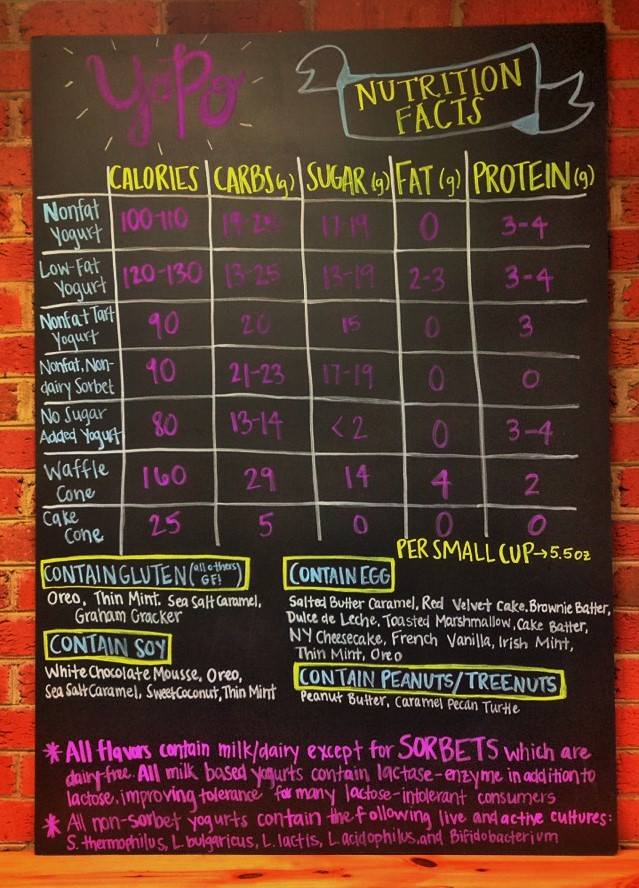 YoPo
NUTRITION
FACTS
CALORIES CARBS(g) SUGAR (g) FAT (g) PROTEIN (g)
Nonfat Yogurt 100-110 17-19 0 3-4
Low-Fat Yogurt 120-130 13-25 13-19 2-3 3-4
Nonfat Tart Yogurt 90 20 15 0 3
Nonfat, Non-dairy Sorbet 90 21-23 17-19 0 0
No Sugar Added Yogurt 80 13-14 <2 0 3-4
Waffle Cone 160 29 14 4 2
Cake Cone 25 5 0 0 0
PER SMALL CUP→5.5oz
CONTAIN GLUTEN (all others GF!)
Oreo, Thin Mint, Sea Salt Caramel,
Graham Cracker
CONTAIN SOY
White Chocolate Mousse, Oreo,
Sea Salt Caramel, Sweet Coconut, Thin Mint
CONTAIN EGG
Salted Butter Caramel, Red Velvet Cake, Brownie Batter,
Dulce de Leche, Toasted Marshmallow, Cake Batter,
NY Cheesecake, French Vanilla, Irish Mint,
Thin Mint, Oreo
CONTAIN PEANUTS/TREENUTS
Peanut Butter, Caramel Pecan Turtle
* All flavors contain milk/dairy except for SORBETS which are
dairy-free. All milk based yogurts contain lactase-enzyme in addition to
lactose, improving tolerance for many lactose-intolerant consumers
* All non-sorbet yogurts contain the following live and active cultures:
S. thermophilus, L. bulgaricus, L. lactis, L. acidophilus, and Bifidobacterium